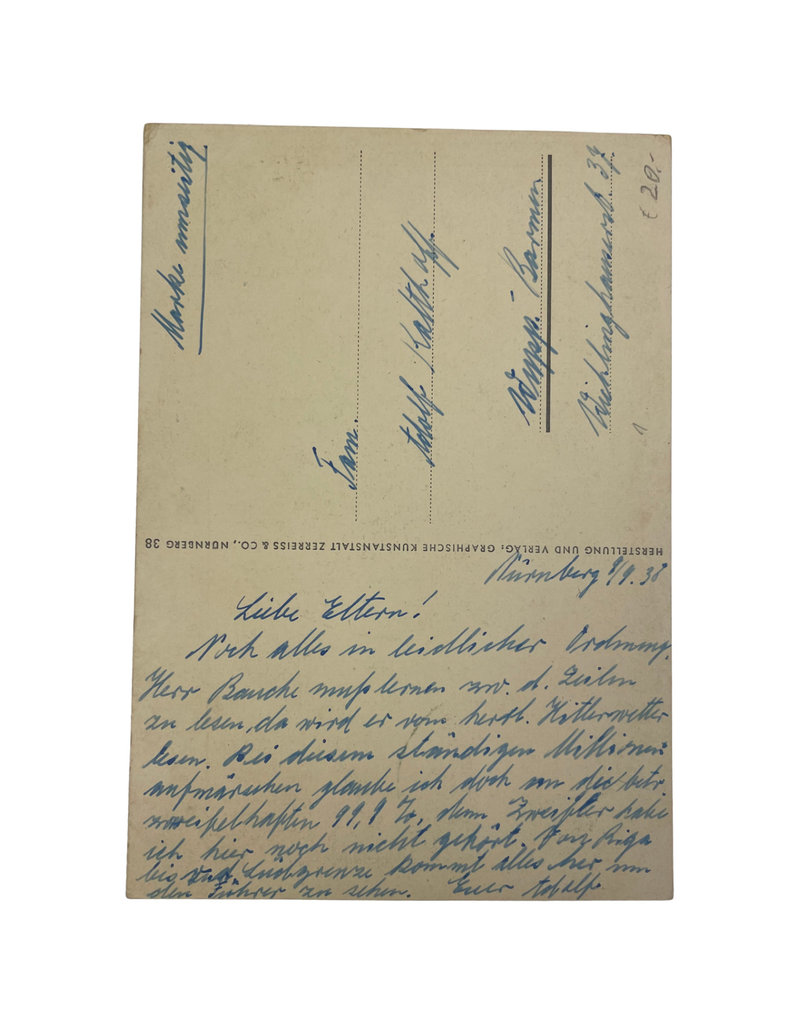 Marke umseitig
Fam.
Adolf Kalthoff
Wupp.-Barmen
Wichlinghauserst. 37.
€ 20.-
HERSTELLUNG UND VERLAG: GRAPHISCHE KUNSTANSTALT ZERREISS & CO., NÜRNBERG 38
Nürnberg 9/9. 38
Liebe Eltern!
Noch alles in leidlicher Ordnung.
Herr Bauche muß lernen zw. d. Zeilen
zu lesen, da wird er vom herrl. Hitlerwetter
lesen. Bei diesem ständigen Millionen-
aufmärschen glaube ich doch an die betr.
zweifelhaften 99,9 %, denn Zweifler habe
ich hier noch nicht gehört. Von Riga
bis Südgrenze kommt alles her um
den Führer zu sehen. Euer Adolf.